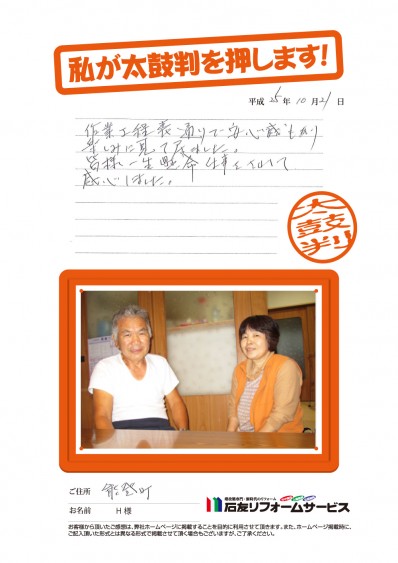 私が太鼓判を押します!
平成 25年 10月 21日
作業工程表通りで安心感もあり
楽しみに見て居ました。
皆様一生懸命仕事をして
感心しました。
太鼓判
ご住所 能登町
お名前 H 様
石友リフォームサービス
お客様から頂いたご感想は、弊社ホームページに掲載することを目的に利用させて頂きます。また、ホームページ掲載時に、
ご記入頂いた形式とは異なる形式で掲載させて頂く場合もございますが、ご了承ください。